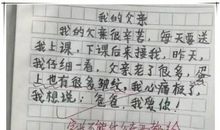 我的父亲
我的父亲很辛苦，每天要送
我上课，下课后来接我，昨天，
我仔细一看，父亲老了很多，
上也有很多皱纹，我心痛极了，
我想说：爸爸，我爱你！